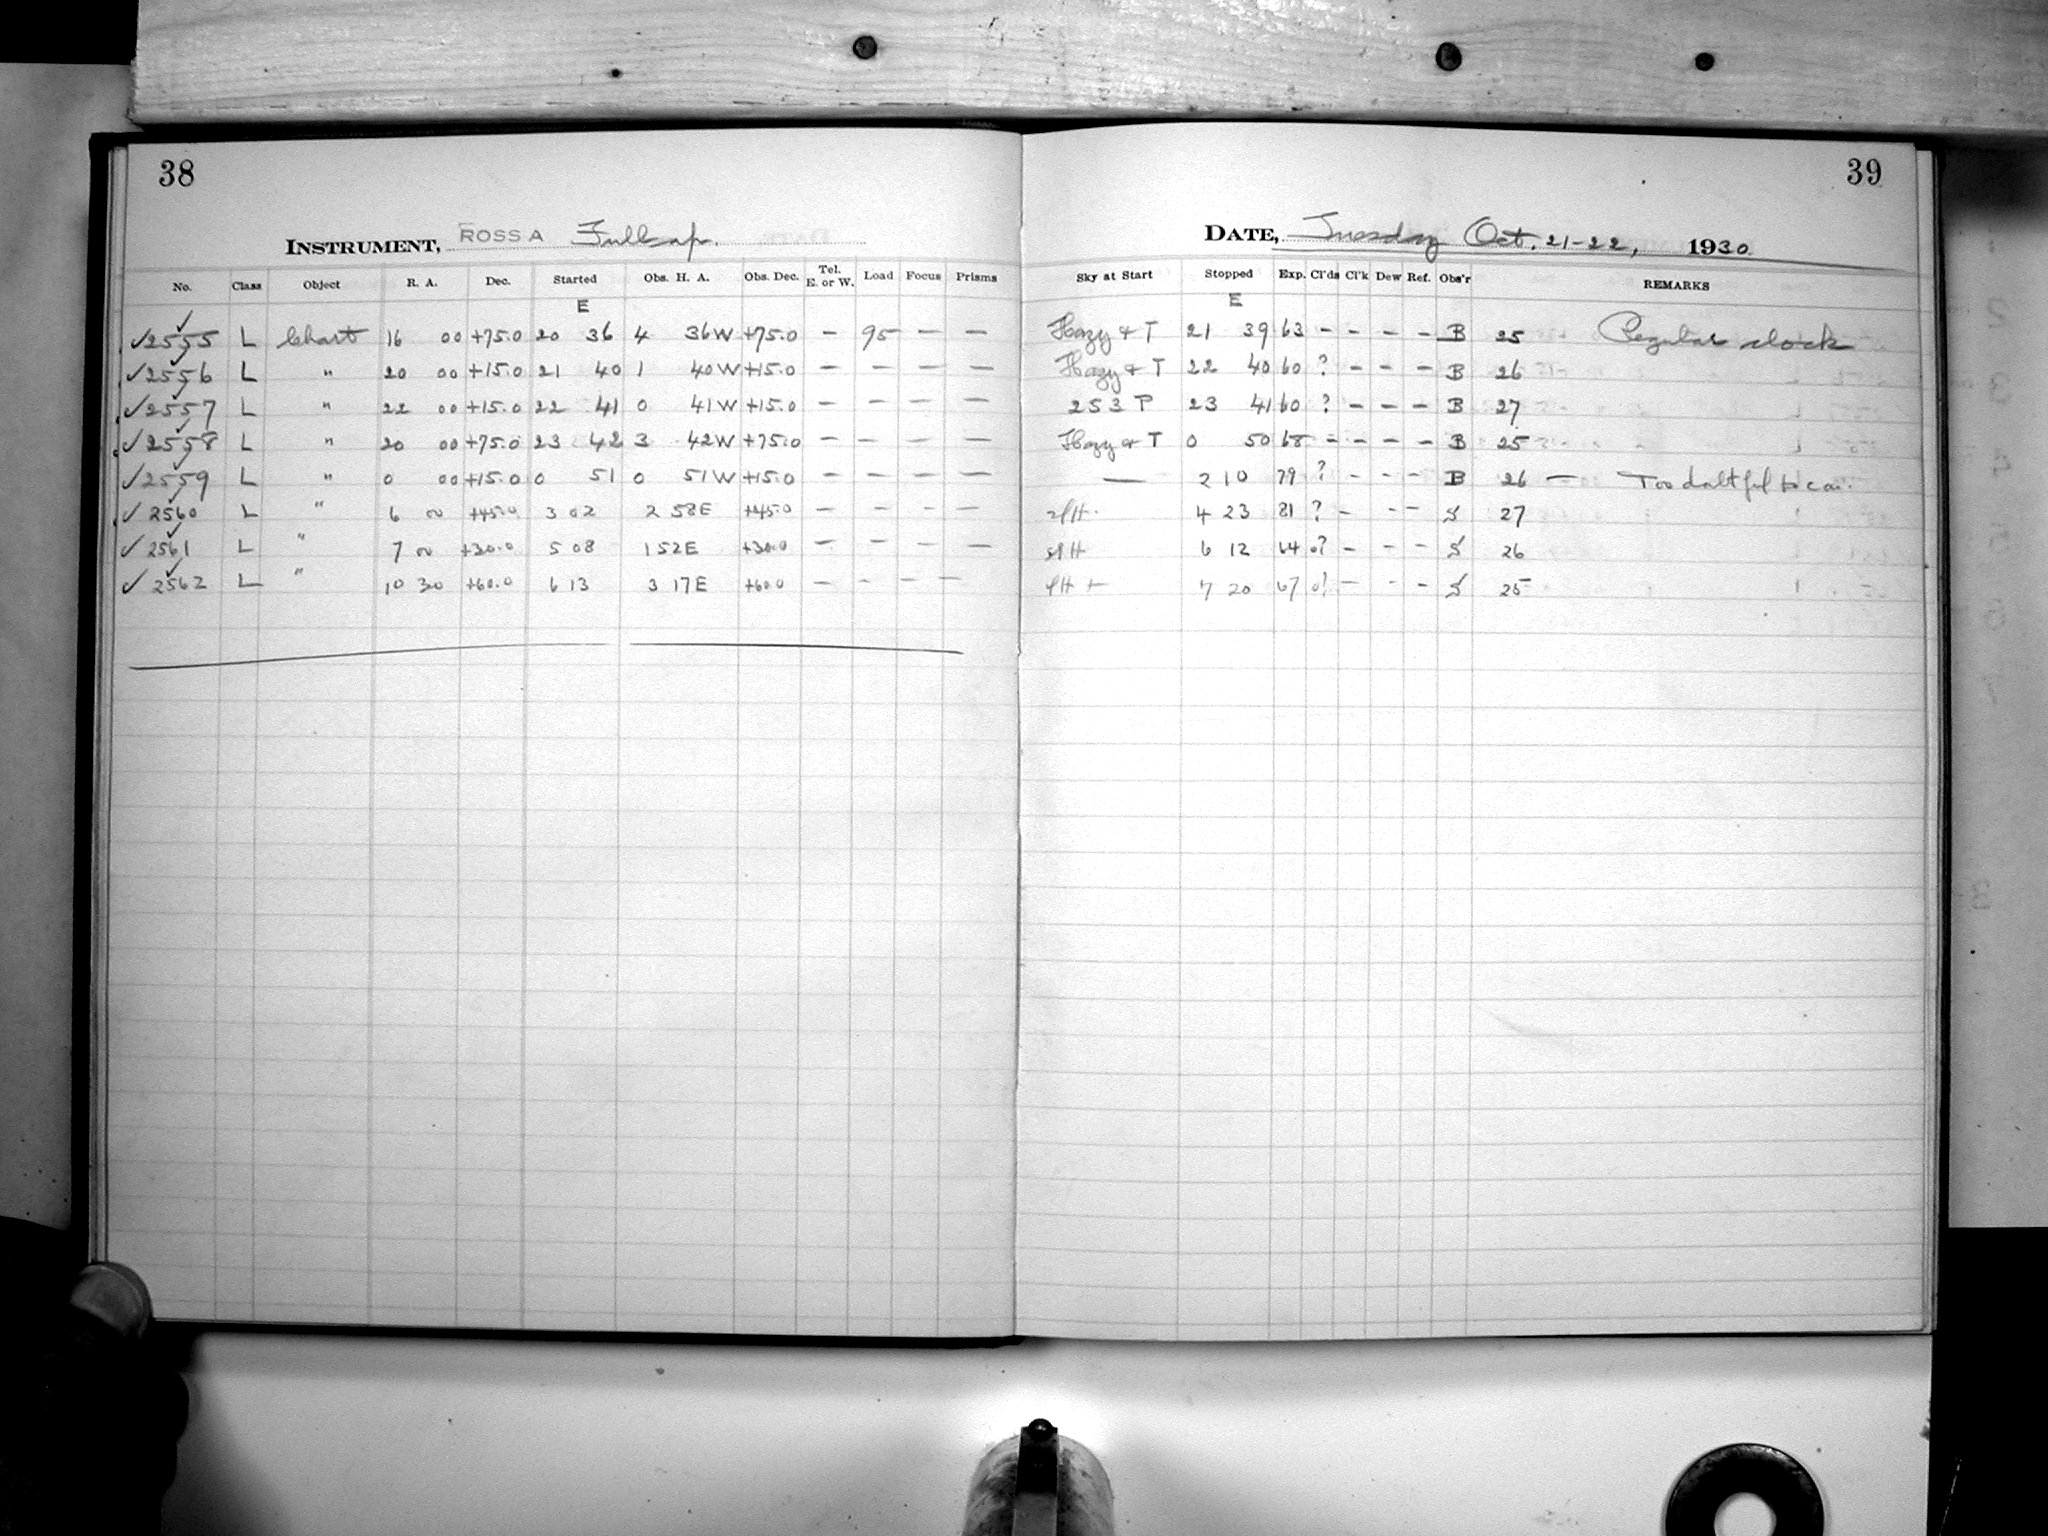 38
INSTRUMENT, ROSS A Full ap.
No. Class Object R. A. Dec. Started Obs. H. A. Obs. Dec. Tel. E. or W. Load Focus Prisms
E
✓2555 ✓ L Chart 16 00 +75.0 20 36 4 36W +75.0 — 95 — —
✓2556 ✓ L " 20 00 +15.0 21 40 1 40W +15.0 — — — —
✓2557 ✓ L " 22 00 +15.0 22 41 0 41W +15.0 — — — —
✓2558 ✓ L " 20 00 +75.0 23 42 3 42W +75.0 — — — —
✓2559 ✓ L " 0 00 +15.0 0 51 0 51W +15.0 — — — —
✓2560 L " 6 00 +45.0 3 02 2 58E +45.0 — — — —
✓2561 ✓ L " 7 00 +30.0 5 08 1 52E +30.0 — — — —
✓2562 ✓ L " 10 30 +60.0 6 13 3 17E +60.0 — — — —
39
DATE, Tuesday Oct. 21-22, 1930.
Sky at Start Stopped Exp. Cl'ds Cl'k Dew Ref. Obs'r REMARKS
E
Hazy & T 21 39 63 - - - - B 25 Regular clock
Hazy & T 22 40 60 ? - - - B 26
253 P 23 41 60 ? - - - B 27
Hazy & T 0 50 68 - - - - B 25
— 2 10 79 ? - - - B 26 — Too
4 23 81 ? - - - S 27
6 12 64 0? - - - S 26
7 20 67 0? - - - S 25